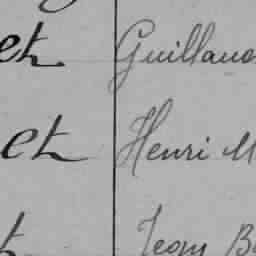 et Guillau
et Henri M
t Jean B